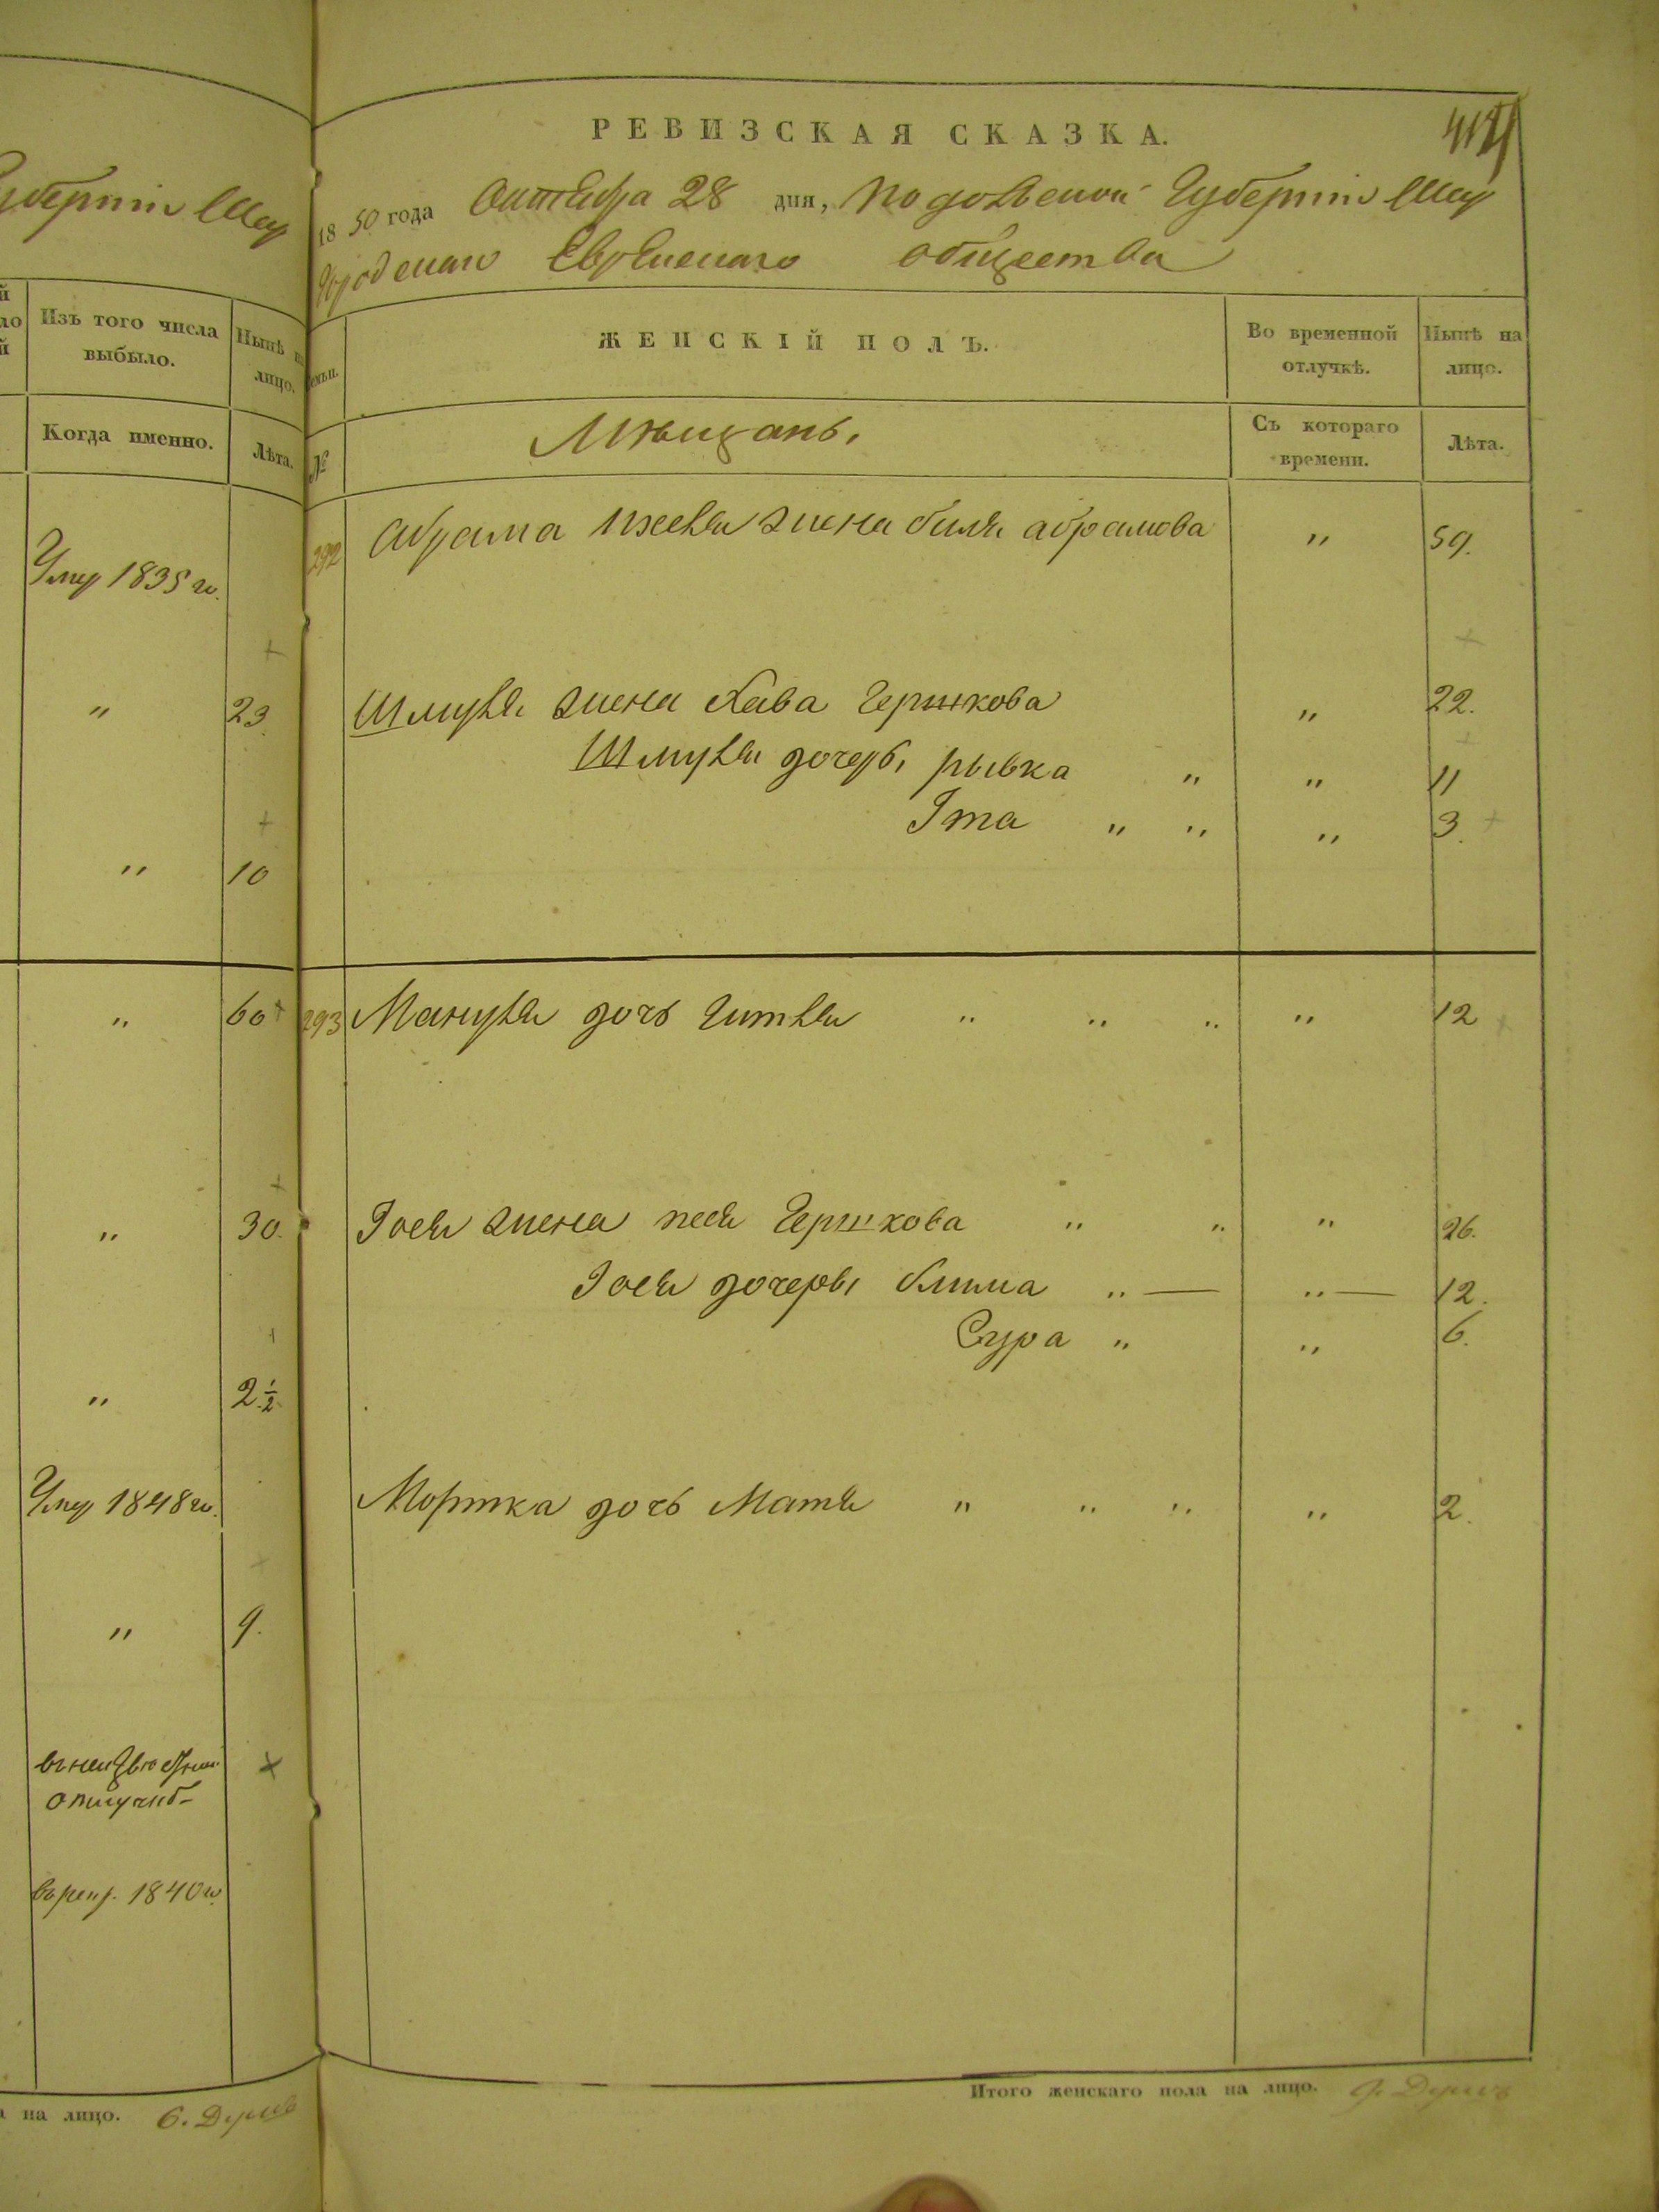 Губерніи Шар
Изъ того числа выбыло.
Нынѣ на лицо.
Когда именно.
Лѣта.
Умер 1835 го.
" 23.
" 10
" 60
" 30.
" 2 1/2
Умер 1848 го.
" 9.
въ неизвѣстной
отлучкѣ
въ рекр. 1840 го
на лицо. 6. Душъ
414
РЕВИЗСКАЯ СКАЗКА.
1850 года Октября 28 дня, Подольской Губерніи Шар
городскаго Еврейскаго общества
семьи.
ЖЕНСКІЙ ПОЛЪ.
Во временной отлучкѣ.
Нынѣ на лицо.
№
Мѣщанъ.
Съ котораго времени.
Лѣта.
292 Абрама жена биля абрамова " 59.
Шмуля жена Хава Гершкова " 22.
Шмуля дочеры рывка " " 11
Ита " " " 3.
293 Мануля дочь Гитля " " " " 12
Иося жена песя Гершкова " " " 26.
Иося дочеры блима " — " — 12.
Сура " " 6.
Мортка дочь Матя " " " " 2.
Итого женскаго пола на лицо. 9. Душъ